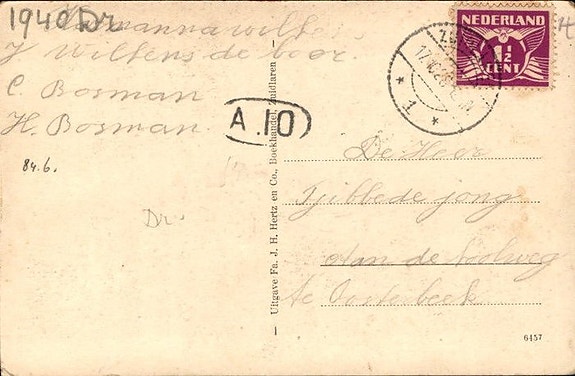 1940 Dr
Hermanna wilkens
J Wilkens de boer.
C Bosman
H. Bosman
84.6.
Dr.
A.10
Uitgave Fa. J. H. Hertz en Co., Boekhandel, Zuidlaren
NEDERLAND
1½
CENT
De Heer
Tjibbe de jong
Aan de
te Oosterbeek
6157